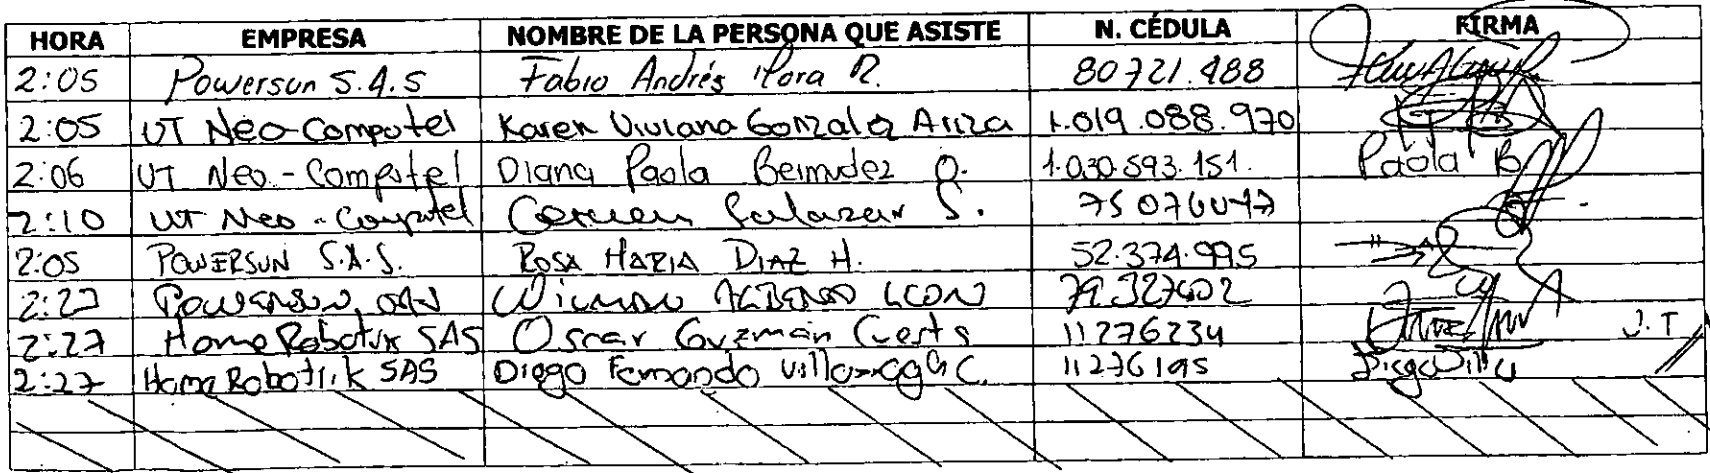 HORA EMPRESA NOMBRE DE LA PERSONA QUE ASISTE N. CÉDULA FIRMA
2:05 Powersun S.A.S Fabio Andrés R. 80721.488
2:05 UT Neo-Computel Karen Viviana Gonzalez Ariza 1.019.088.970
2:06 UT Neo-Computel Diana Paola Bermudez O. 1.030.593.151. Paola B
2:10 UT Neo-Computel Salazar S.
2:05 POWERSUN S.A.S. ROSA MARIA DIAZ H. 52.374.995
2:27 POWERSUN LEON
2:27 Home Robotik SAS Oscar Guzmán 11276234 J.T
2:27 Home Robotik SAS Diego Fernando C. 11276195